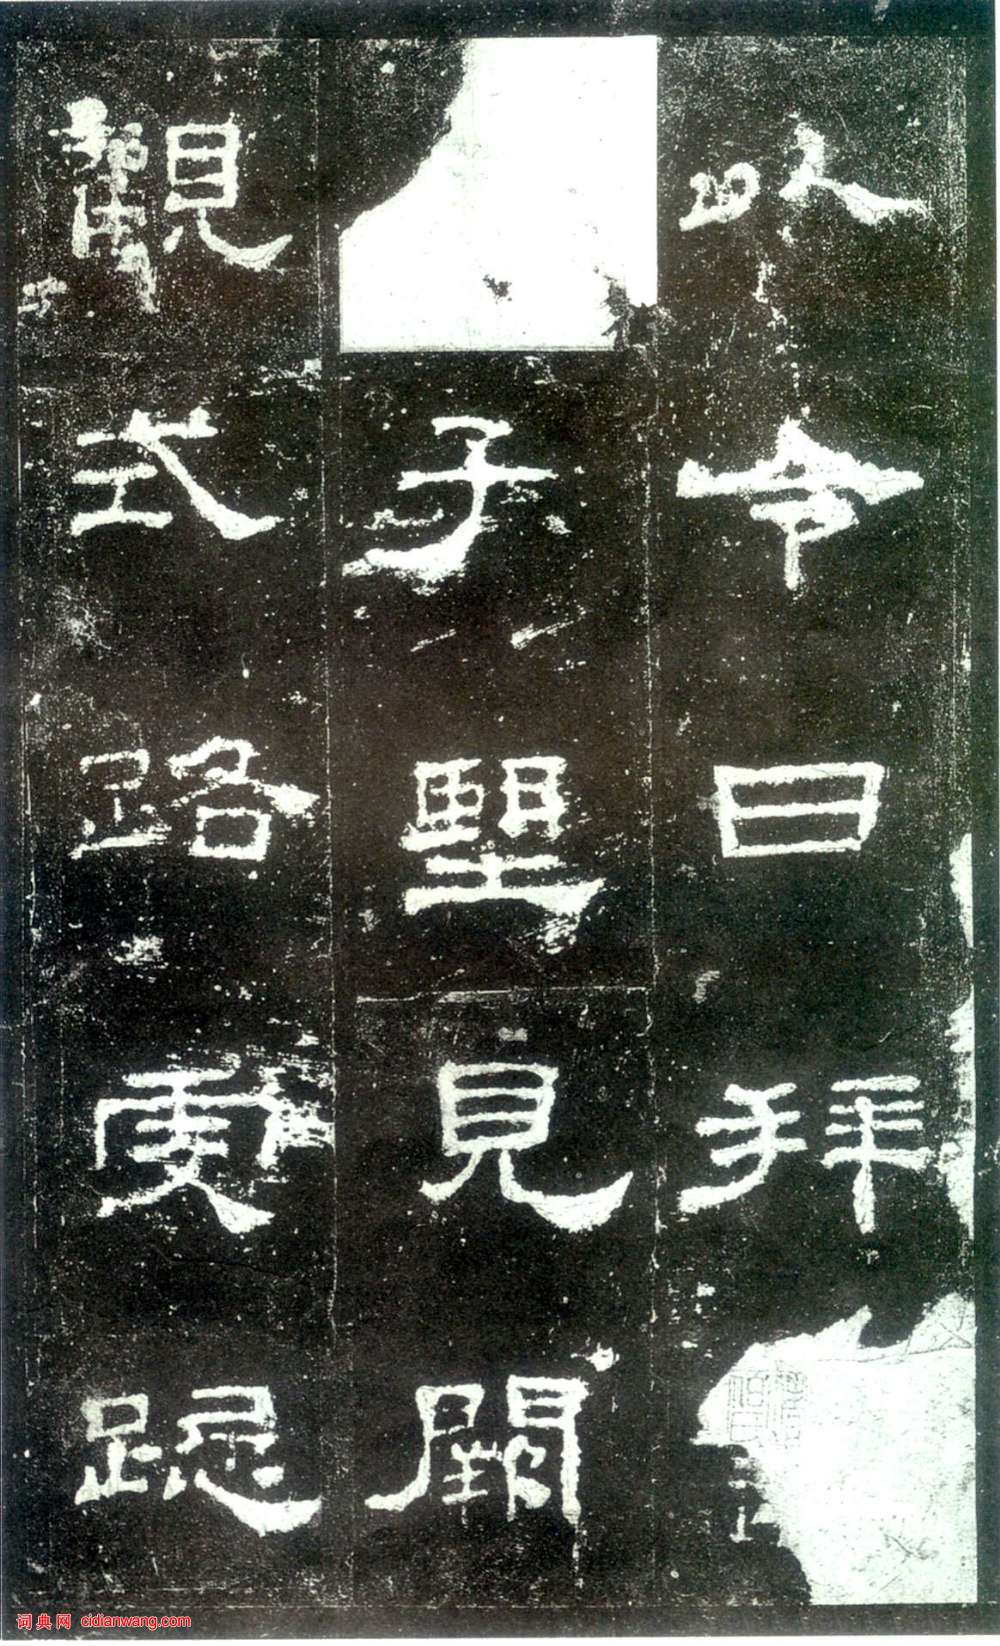 以令日拜
子望見闕
觀式路虔跽
词典网 cidianwang.com